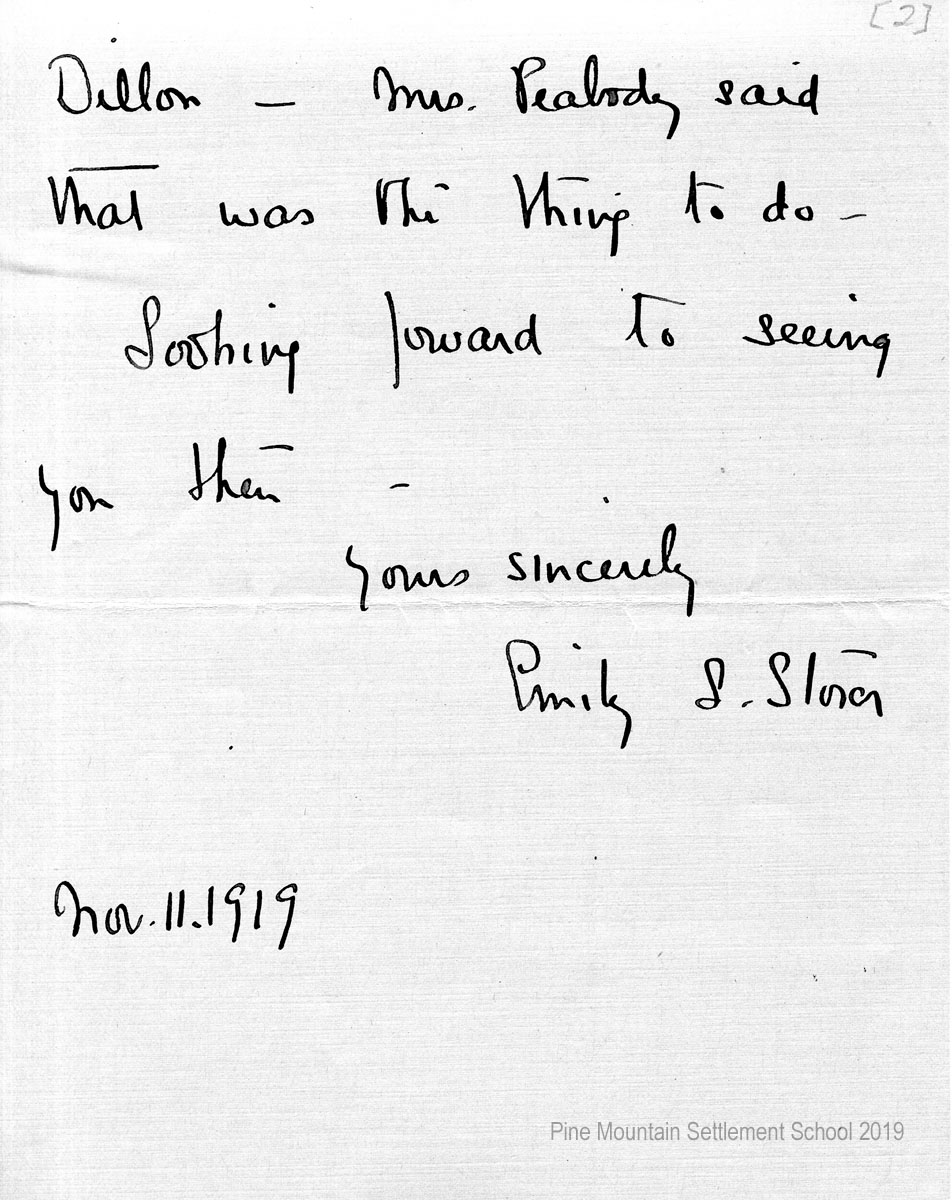 [2]
Dillon — Mrs. Peabody said
that was the thing to do –
Looking forward to seeing
you then –
Yours sincerely
Emily S. Storer
Nov. 11. 1919
Pine Mountain Settlement School 2019